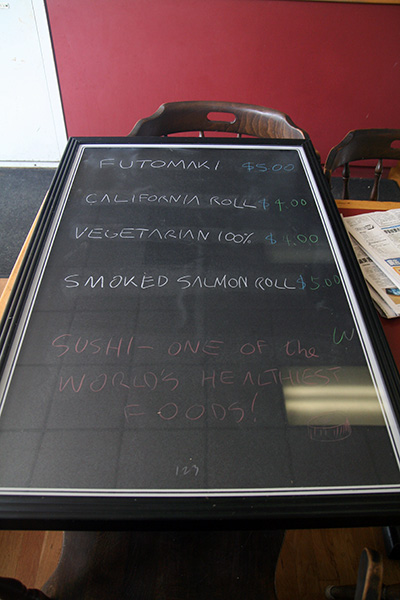 FUTOMAKI $5.00
CALIFORNIA ROLL $4.00
VEGETARIAN 100% $4.00
SMOKED SALMON ROLL $5.00
SUSHI - ONE OF the W
WORLD'S HEALTHIEST
FOODS!